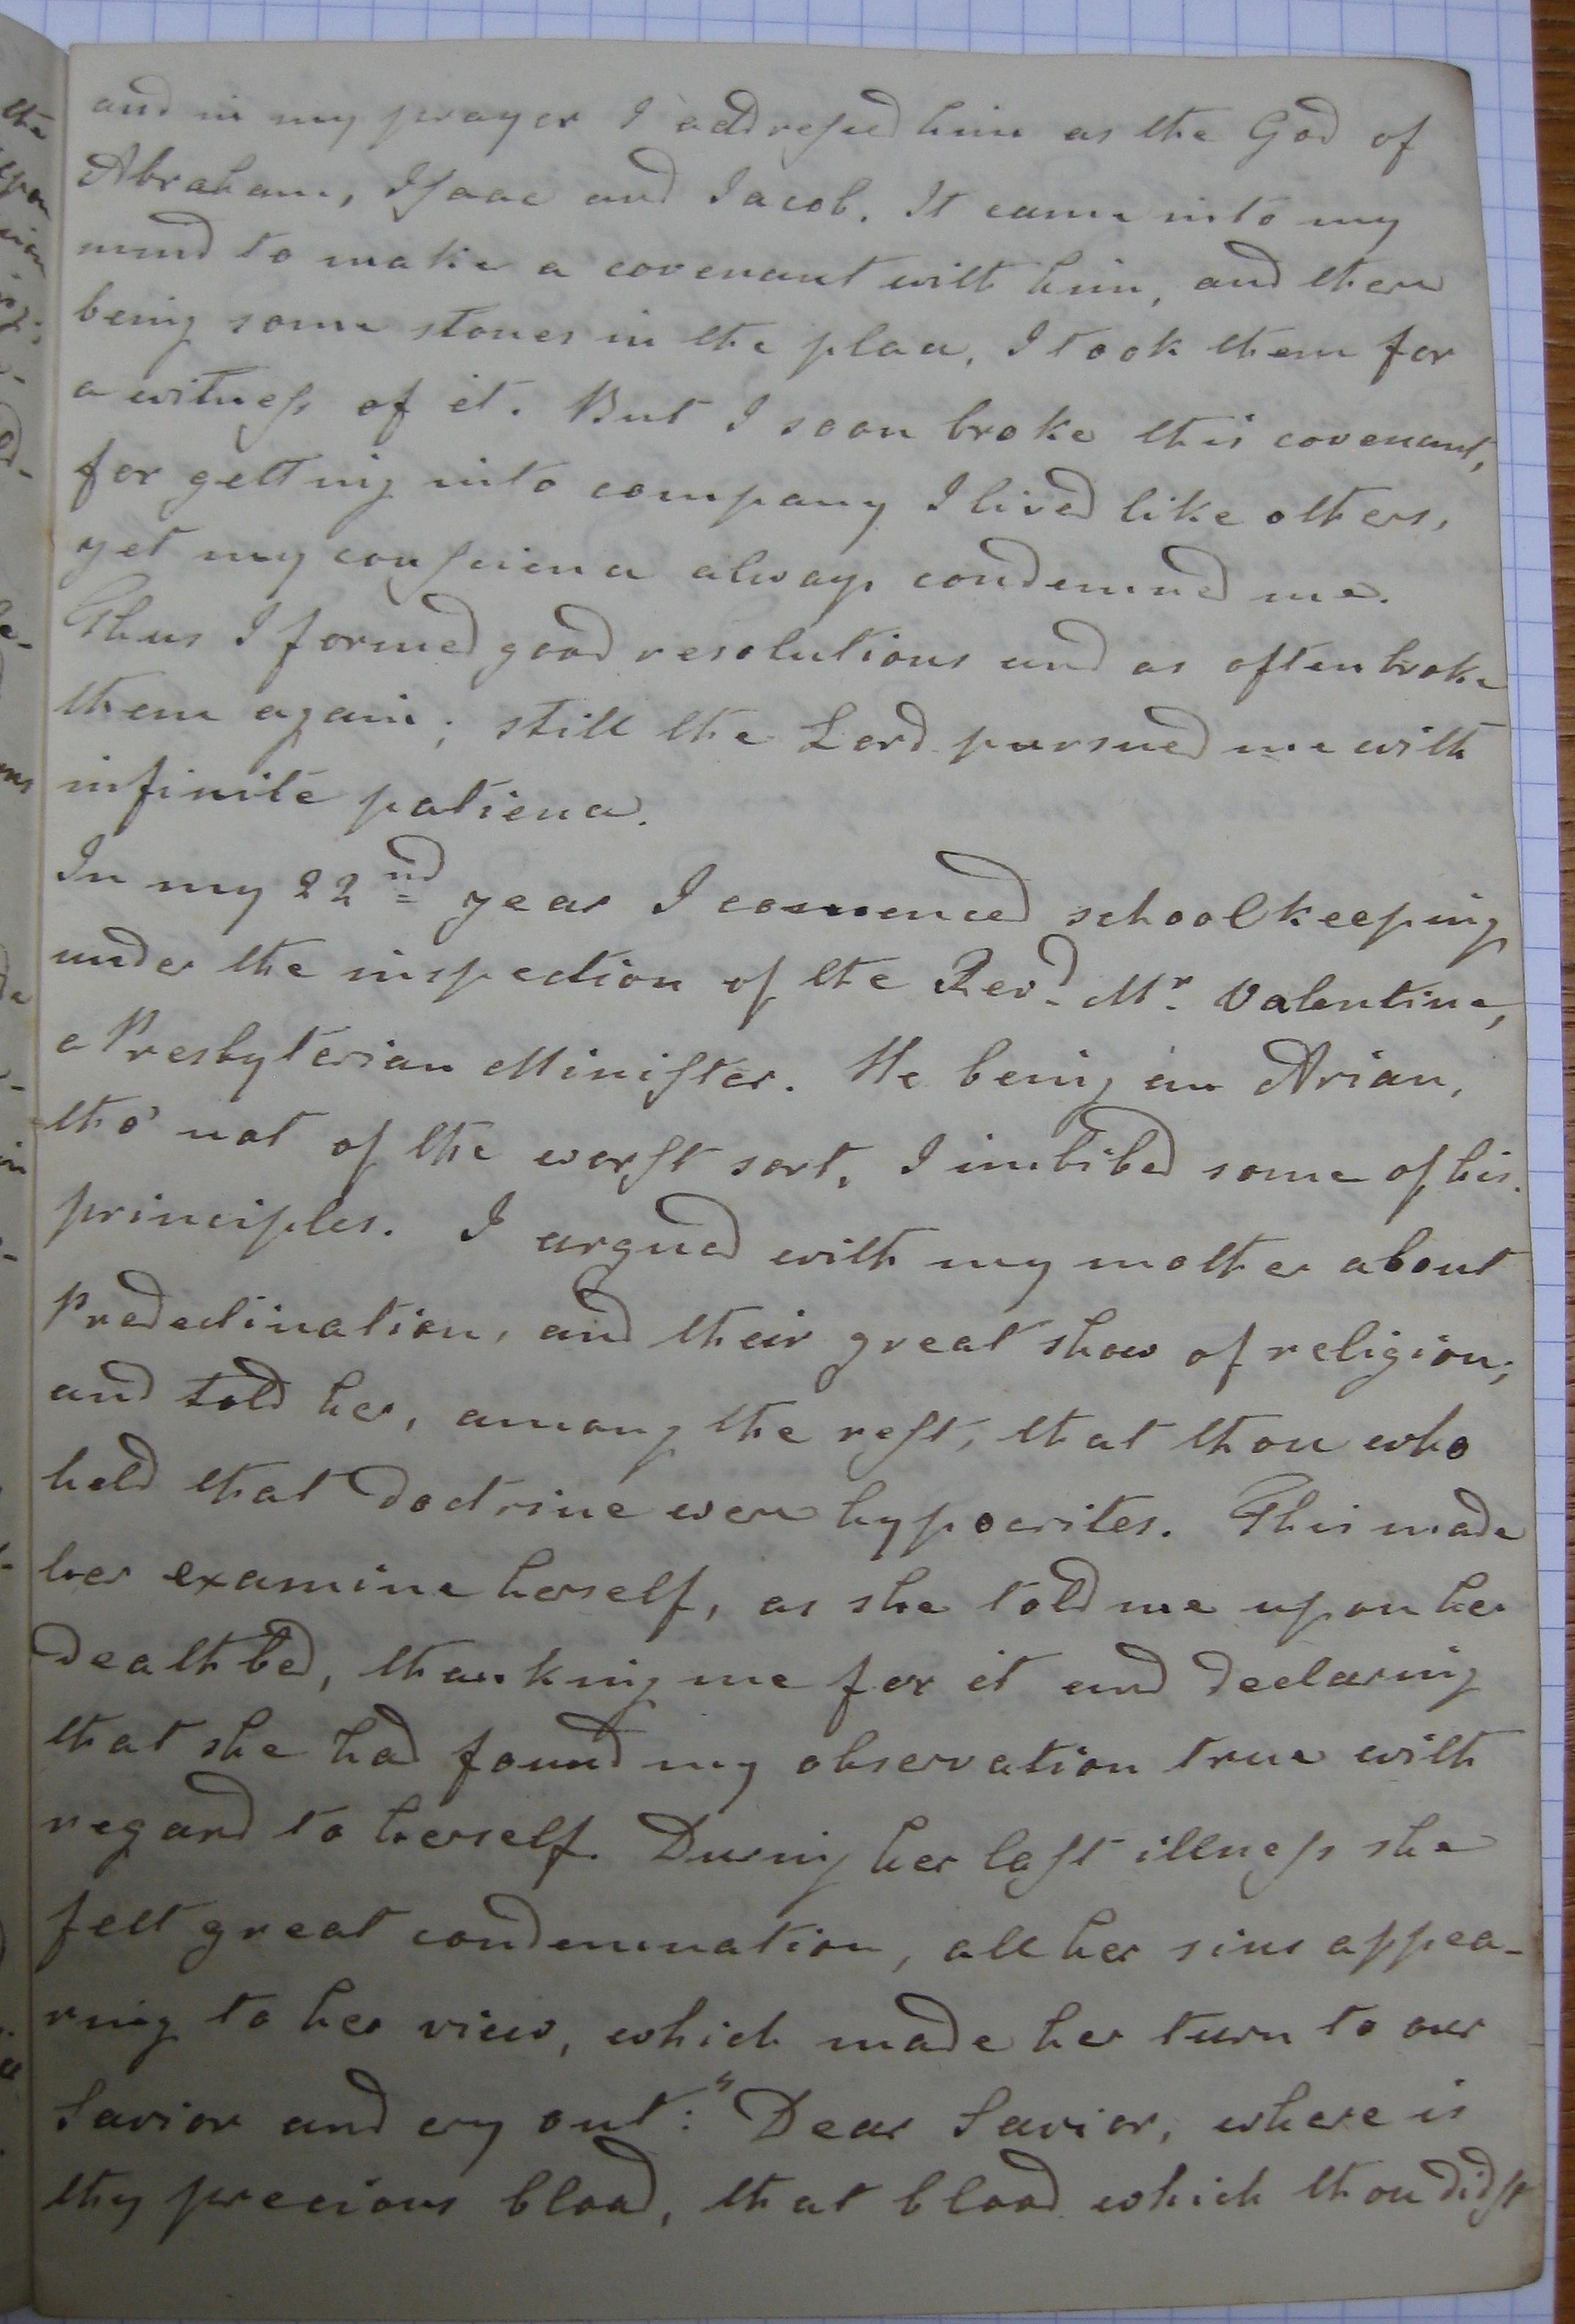 and in my prayer I addreſsed him as the God of
Abraham, Isaac and Jacob. It came into my
mind to make a covenant with him, and there
being some stones in the place, I took them for
a witneſs of it. But I soon broke this covenant,
for getting into company I lived like others,
yet my conſcience always condemned me.
Thus I formed good resolutions and as often broke
them again; still the Lord pursued me with
infinite patience.
In my 22nd year I comenced schoolkeeping
under the inspection of the Revd. Mr. Valentine,
a Presbyterian Miniſter. He being an Arian,
tho' not of the worſt sort, I imbibed some of his
principles. I argued with my mother about
Predestination, and their great show of religion;
and told her, among the reſt, that those who
held that doctrine were hypocrites. This made
her examine herself, as she told me upon her
deathbed, thanking me for it and declaring
that she had found my observation true with
regard to herself. During her laſt illneſs she
felt great condemnation, all her sins appea-
ring to her view, which made her turn to our
Savior and cry out: "Dear Savior, where is
thy precious blood, that blood which thou didſt